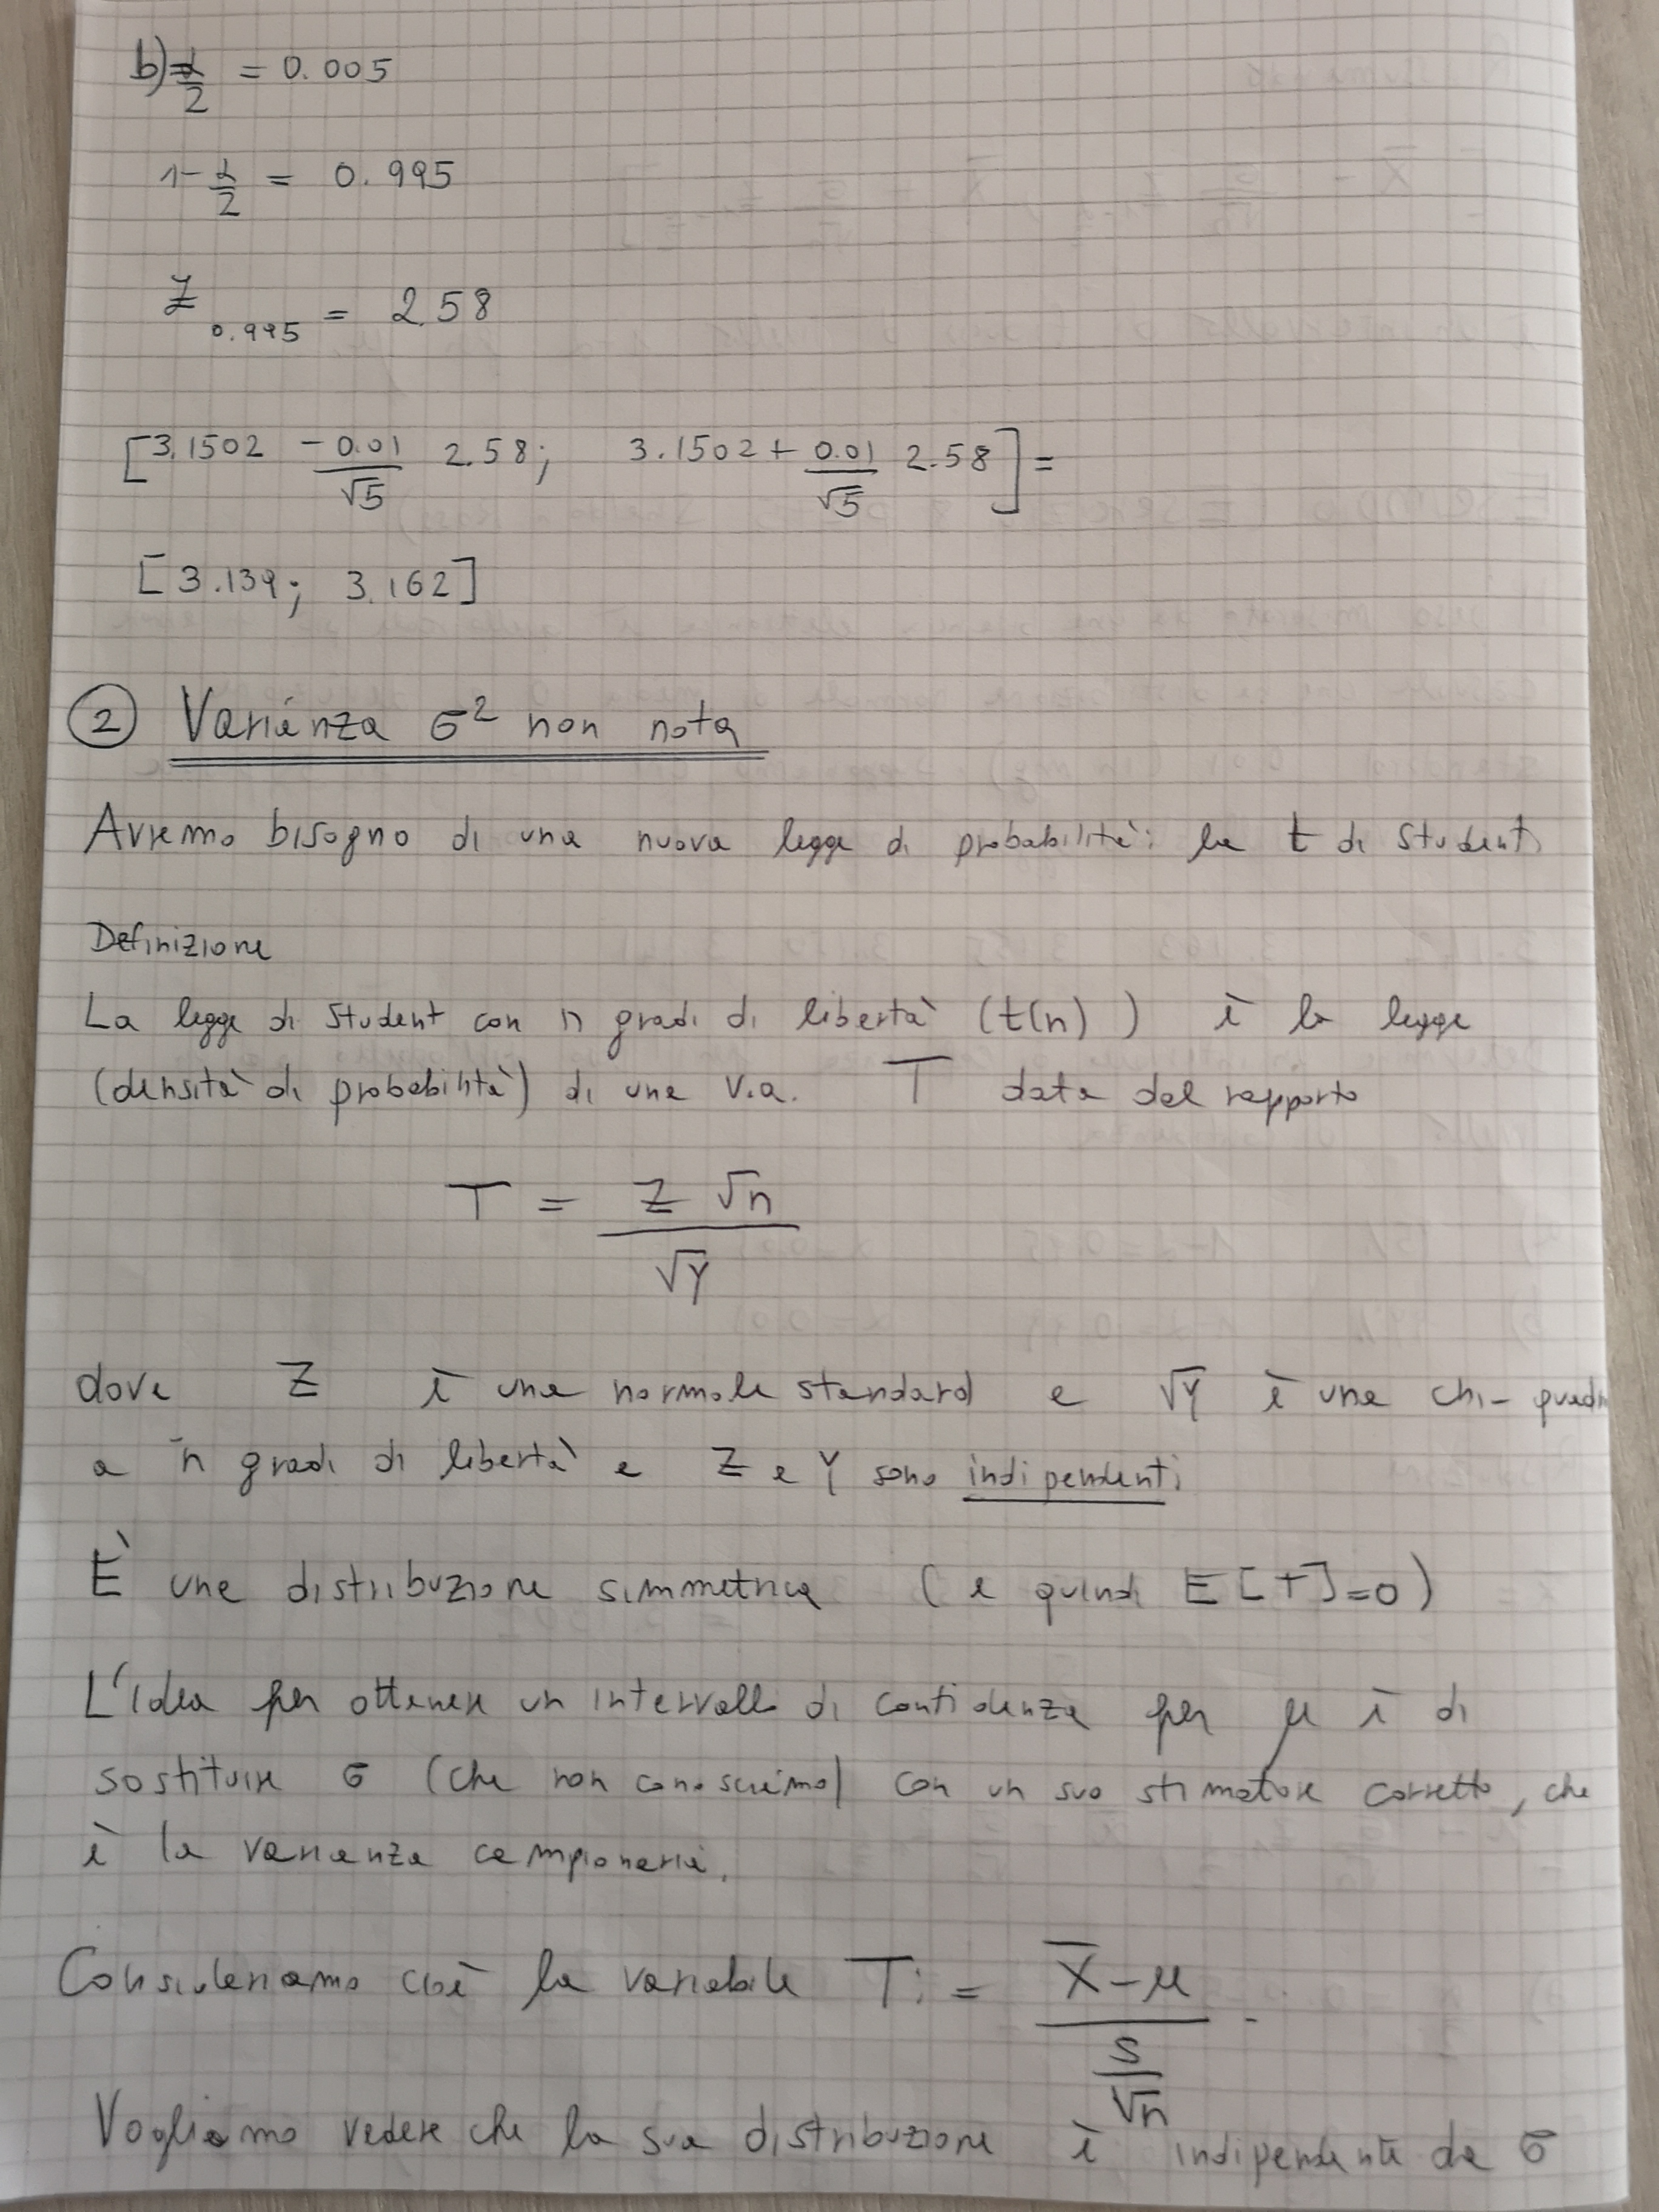 b) α/2 = 0.005
1-α/2 = 0.995
Z_0.995 = 2.58
[3.1502 - 0.01/√5 2.58; 3.1502 + 0.01/√5 2.58] =
[3.139; 3.162]
② Varianza σ² non nota
Avremo bisogno di una nuova legge di probabilità: la t di Student
Definizione
La legge di Student con n gradi di libertà (t(n)) è la legge
(densità di probabilità) di una v.a. T data dal rapporto
T = Z √n / √Y
dove Z è una normale standard e √Y è una chi-quadr
a n gradi di libertà e Z e Y sono indipendenti
È una distribuzione simmetrica (e quindi E[T]=0)
L'idea per ottenere un intervallo di confidenza per μ è di
sostituire σ (che non conosciamo) con un suo stimatore corretto, che
è la varianza campionaria.
Consideriamo cioè la variabile T: = X̅-μ / s/√n.
Vogliamo vedere che la sua distribuzione è indipendente da σ